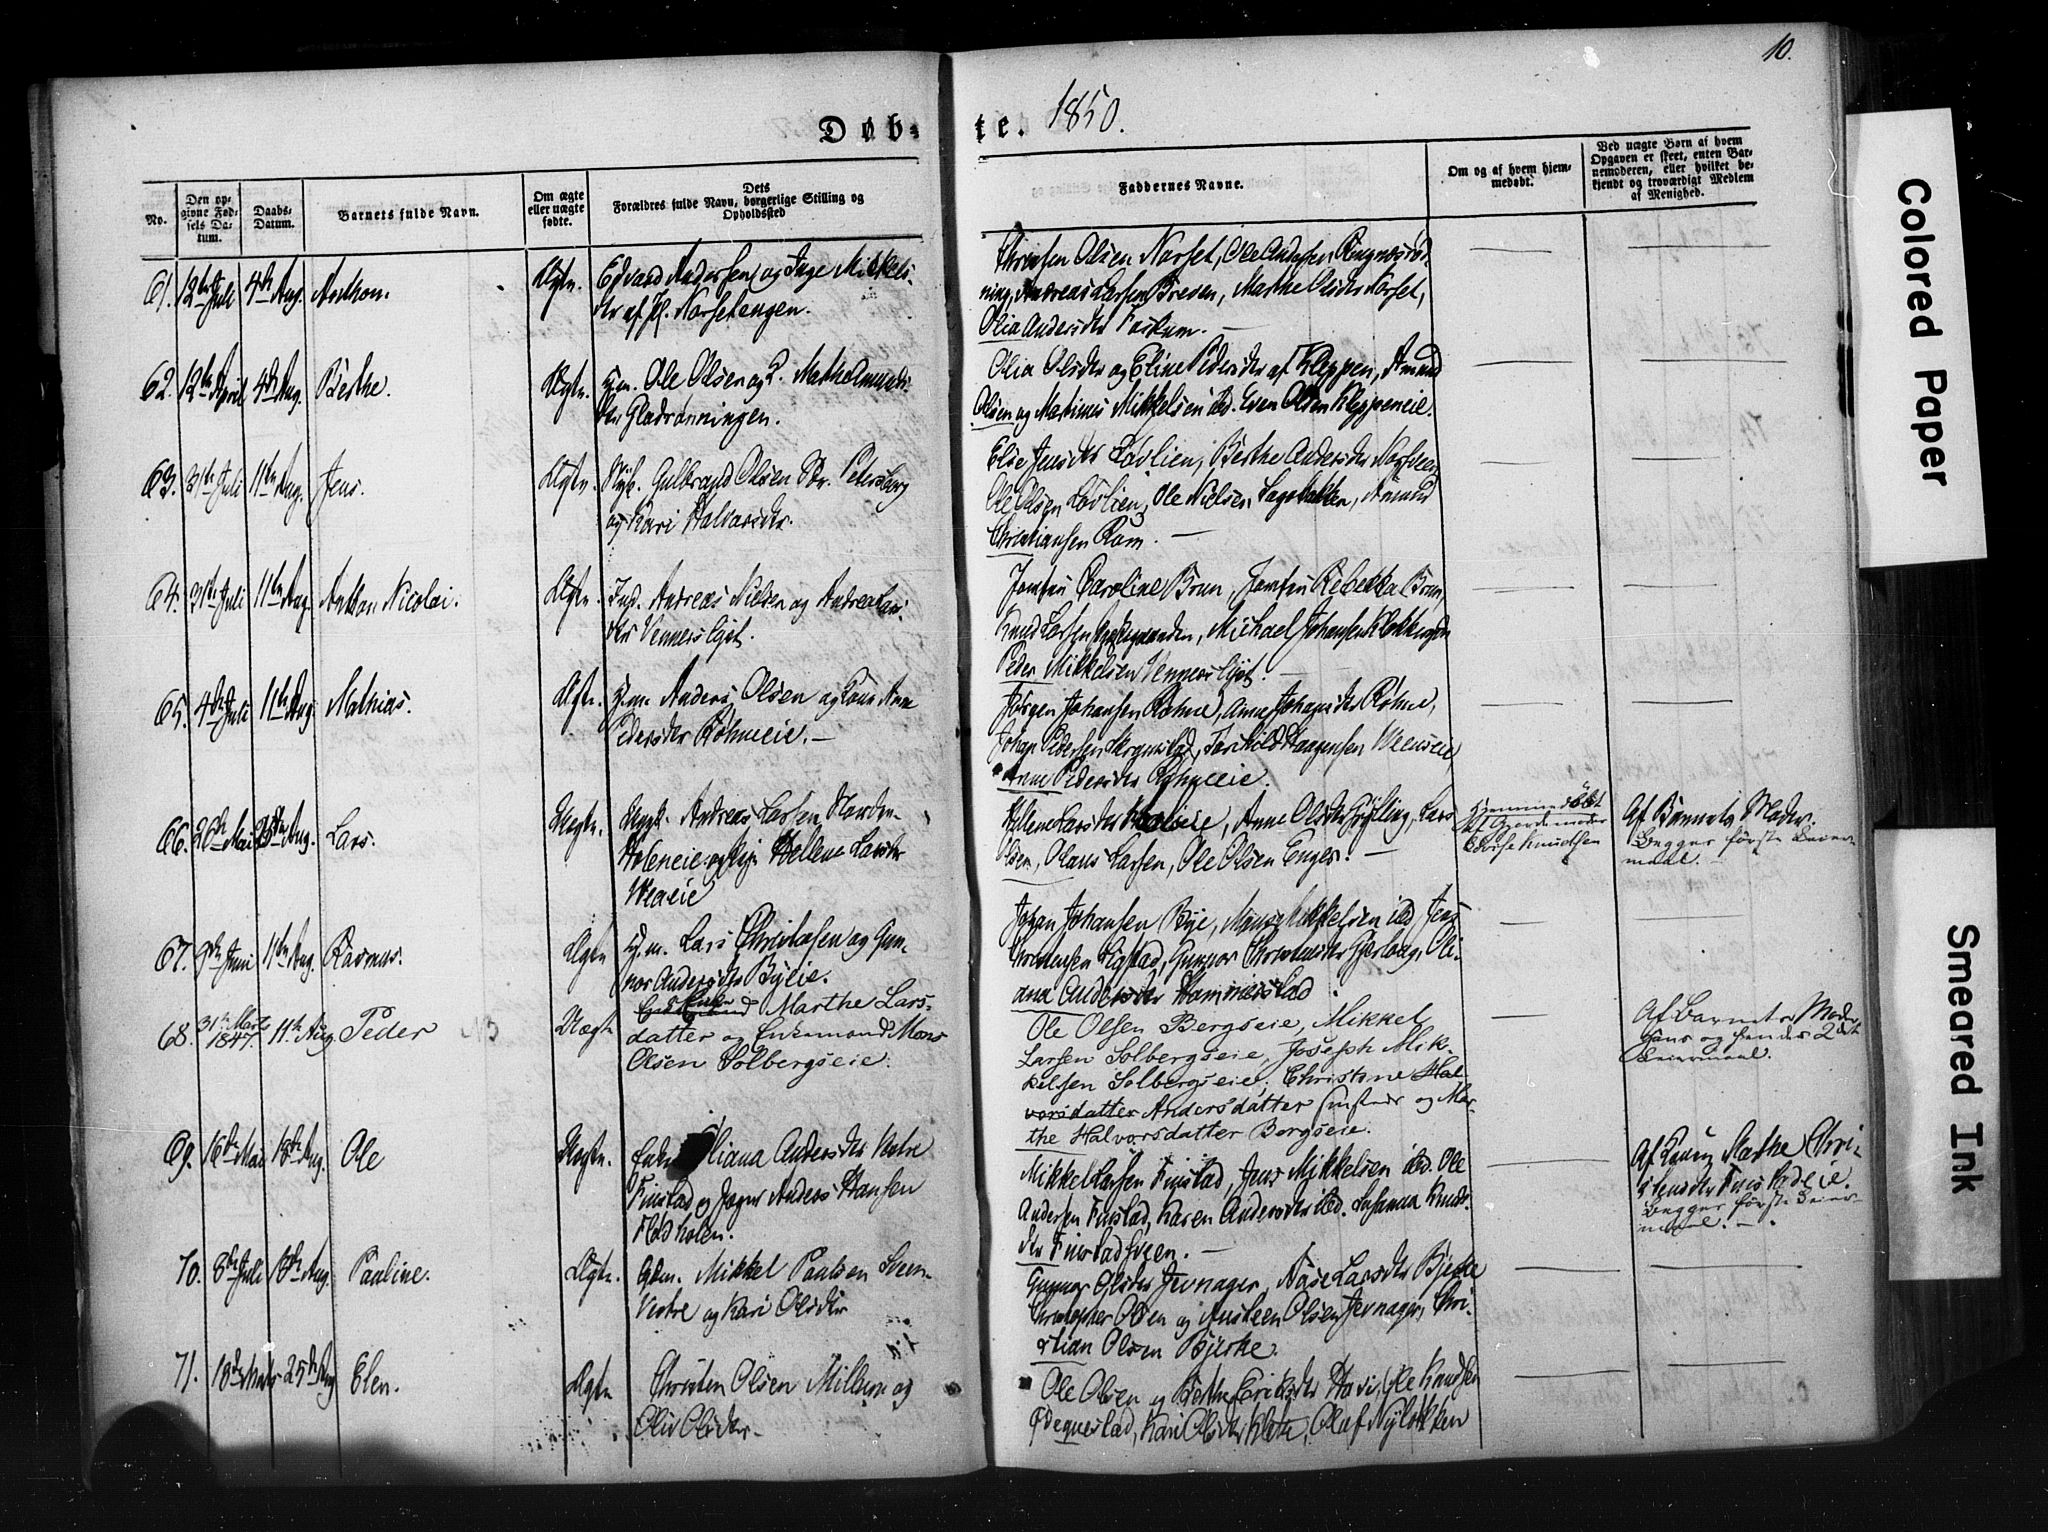 10.
Døb-
te. 1850.
No.
Den op-
givne Fød-
sels Da-
tum.
Daabs-
Datum.
Barnets fulde Navn.
Om ægte
eller uægte
fødte.
Dets
Forældres fulde Navn, borgerlige Stilling og
Opholdssted
Faddernes Navne.
Om og af hvem hjem-
medøbt.
Ved uægte Børn af hvem
Opgaven er skeet, enten Bar-
nemoderen, eller hvilket be-
kjendt og troværdigt Medlem
af Menighed.
61. 12te Juli 4de Aug. Anthon. Ægte. Edvard Andersen og Inge Mikkels-
dtr af Norsetengen.
Christen Olsen Norset, Ole Andersen Ringnesrød-
ning, Andreas Larsen Breven, Marthe Olsdtr Norset,
Olia Andersdtr Foskum. —
62. 12te April 4de Aug. Berthe. Ægte. Ole Olsen og Marthe Amunds-
dtr Gladrønningen.
Olia Olsdtr og Eline Pedersdtr af Kleppen, Amund
Olsen og Martinus Mikkelsen ibd. Even Olsen Kleppeneie.
63. 31te Juli 11te Aug. Jens. Ægte. Gulbrand Olsen Petersborg
og Kari Halvorsdtr.
Else Jensdtr Løvlien, Berthe Andersdtr Norsveen
Ole Olsen Løvlien, Ole Nielsen Sagbakken, Amund
Christiansen Ram. —
64. 31te Juli 11te Aug. Anthon Nicolai. Ægte. Ind. Andreas Nielsen og Andrea Lars-
dtr Venners Ejet.
Jomfru Caroline Brun, Jomfru Rebekka Brun,
Knud Larsen Michael Johansen
Peder Mikkelsen Venners Ejet. —
65. 4de Juli 11te Aug. Mathias. Ægte. Anders Olsen og Kone Anne
Pedersdtr Røhneeie. —
Jørgen Johansen Røhne, Anne Johansdtr Røhne,
Johan Pedersen Haagensen
Anne Pedersdtr Røhneeie.
66. 26de Mai 25de Aug. Lars. Uægte. Ungk. Andreas Larsen Norden-
Holeneie og Pige Hellene Larsdtr
Weaeie
Hellene Larsdtr Anne Olsdtr Lars
Olsen, Olaus Larsen, Ole Olsen Enger. —
Hjemmedøbt
af Gjordemoder
Knudsen
Af Barnets Moder.
Begges første Leier-
maal. —
67. 9de Juni 11te Aug. Rasmus. Ægte Lars Christensen og Gun-
nor Andersdtr Byeie.
Johan Johansen Bye, Mons Mikkelsen ibd, Jens
Christensen Sigstad, Gunnor Christensdtr Gjerdag, Oli-
ana Andersdtr Hammerstad.
68. 31te Marts
1847. 11te Aug. Peder Uægte Enke Marthe Lars-
datter og Enkemand Mons
Olsen Solbergseie.
Ole Olsen Bergseie, Mikkel
Larsen Solbergseie, Joseph Mik-
kelsen Solbergseie, Christine Hal-
vorsdatter Andersdatter og Mar-
the Halvorsdatter Bergseie.
Af Barnets Moder
Hans og hendes 2det
Leiermaal.
69. 16de Mai 18de Aug. Ole Uægte. Enke Oliana Andersdtr Vestre
Finstad og Jæger Anders Hansen
Mikkel Larsen Finstad, Jens Mikkelsen ibd. Ole
Andersen Finstad, Karen Andersdtr ibd. Susanna Knuds-
dtr Finstadsveen. —
Af Marthe Chri-
stensdtr Finstadeie.
Begges første Leier-
maal. —
70. 8de Juli 18de Aug. Pauline. Ægte. Gdm. Mikkel Paulsen Steen-
Vestre og Kari Olsdtr
Gunnor Olsdtr Jevnager, Aase Larsdtr Bjerke
Christopher Olsen og Austeen Olsen Jevnager, Chri-
stian Olsen Bjerke.
71. 18de Marts 25de Aug Elen. Ægte Christen Olsen Millum og
Oliv Olsdtr.
Ole Olsen og Berthe Eriksdtr Ole Knudsen
Kari Olsdtr Klette, Olaf Nyløkken
Colored Paper
Smeared Ink